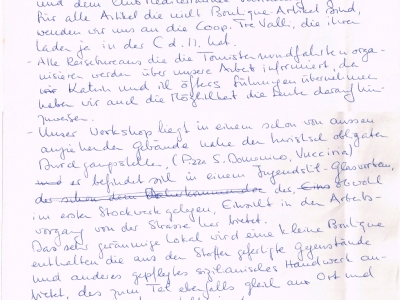 und dem
für alle Artikel die nicht Boutique Artikel sind,
wenden wir uns an die Coop. Tre Valli, die ihren
Laden ja in der C.d. 11. hat.
- Alle Reisebureaus die die Touristenrundfahrten orga-
nisieren werden über unsere Arbeit informiert, da
Katrin und ill öfters führungen übernehmen
haben wir auch die Möglichkeit die Leute darauf hin-
zuweisen.
- Unser Workshop liegt in einem schon von aussen
anziehenden Gebäude nahe den touristisch obligaten
Durchgangsstellen, (Pzza S. Domenico, Vucciria)
er befindet sich in einem Jugendstil-Glasvorbau,
der schon dem der obwohl
im ersten Stockwerk gelegen, Einsicht in den Arbeits-
vorgang von der Strasse her bietet.
Das sehr geräumige Lokal wird eine kleine Boutique
enthalten die aus den Stoffen gefertigte Gegenstände
und anderes gepflegtes sizilianisches Handwerk an-
bietet, das zum Teil ebenfalls gleich am Ort und